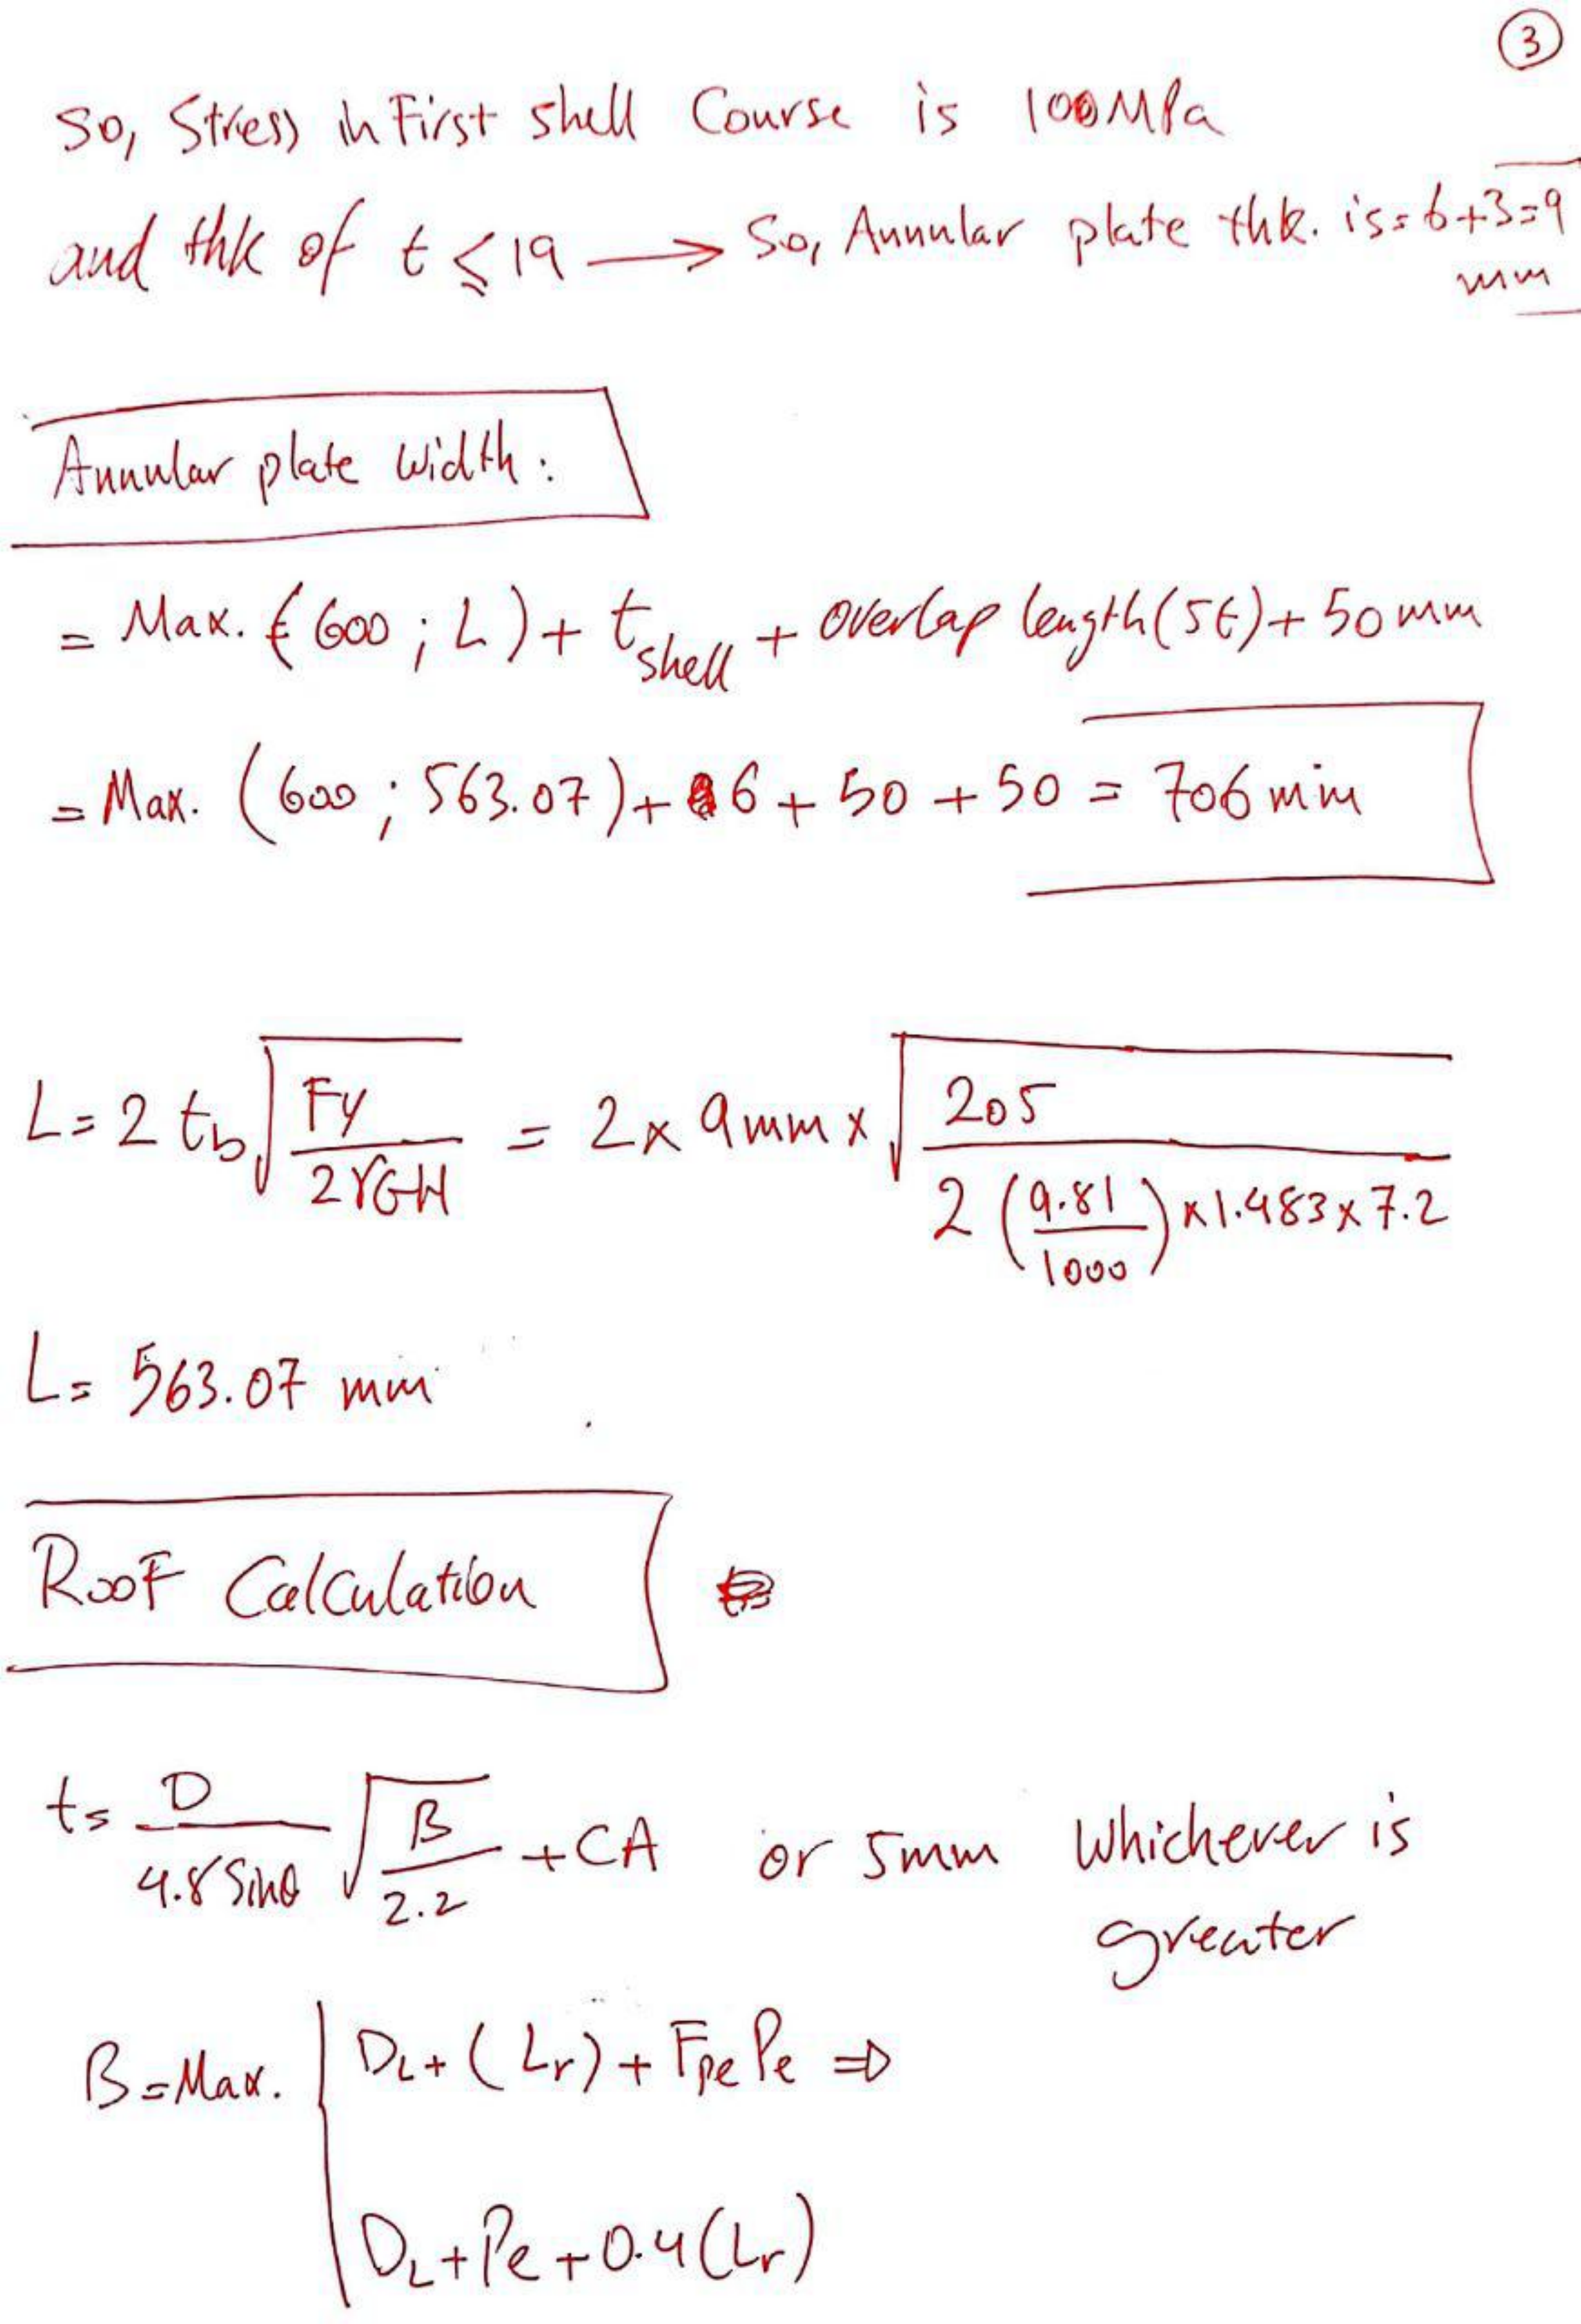 3
So, Stress in First shell Course is 100MPa
and thk of t ≤ 19 → So, Annular plate thk. is = 6+3=9
mm
Annular plate width:
= Max. (600 ; L) + t shell + overlap length (5t) + 50 mm
= Max. (600 ; 563.07) + 6 + 50 + 50 = 706 mm
L = 2 tb √(Fy / 2γGH) = 2 x 9mm x √(205 / 2 (9.81/1000) x 1.483 x 7.2)
L = 563.07 mm
Roof Calculation
t = D / 4.8 Sinθ √(B / 2.2) + CA or 5mm whichever is
greater
B = Max. | DL + (Lr) + Fpe Pe ⇒
DL + Pe + 0.4 (Lr)